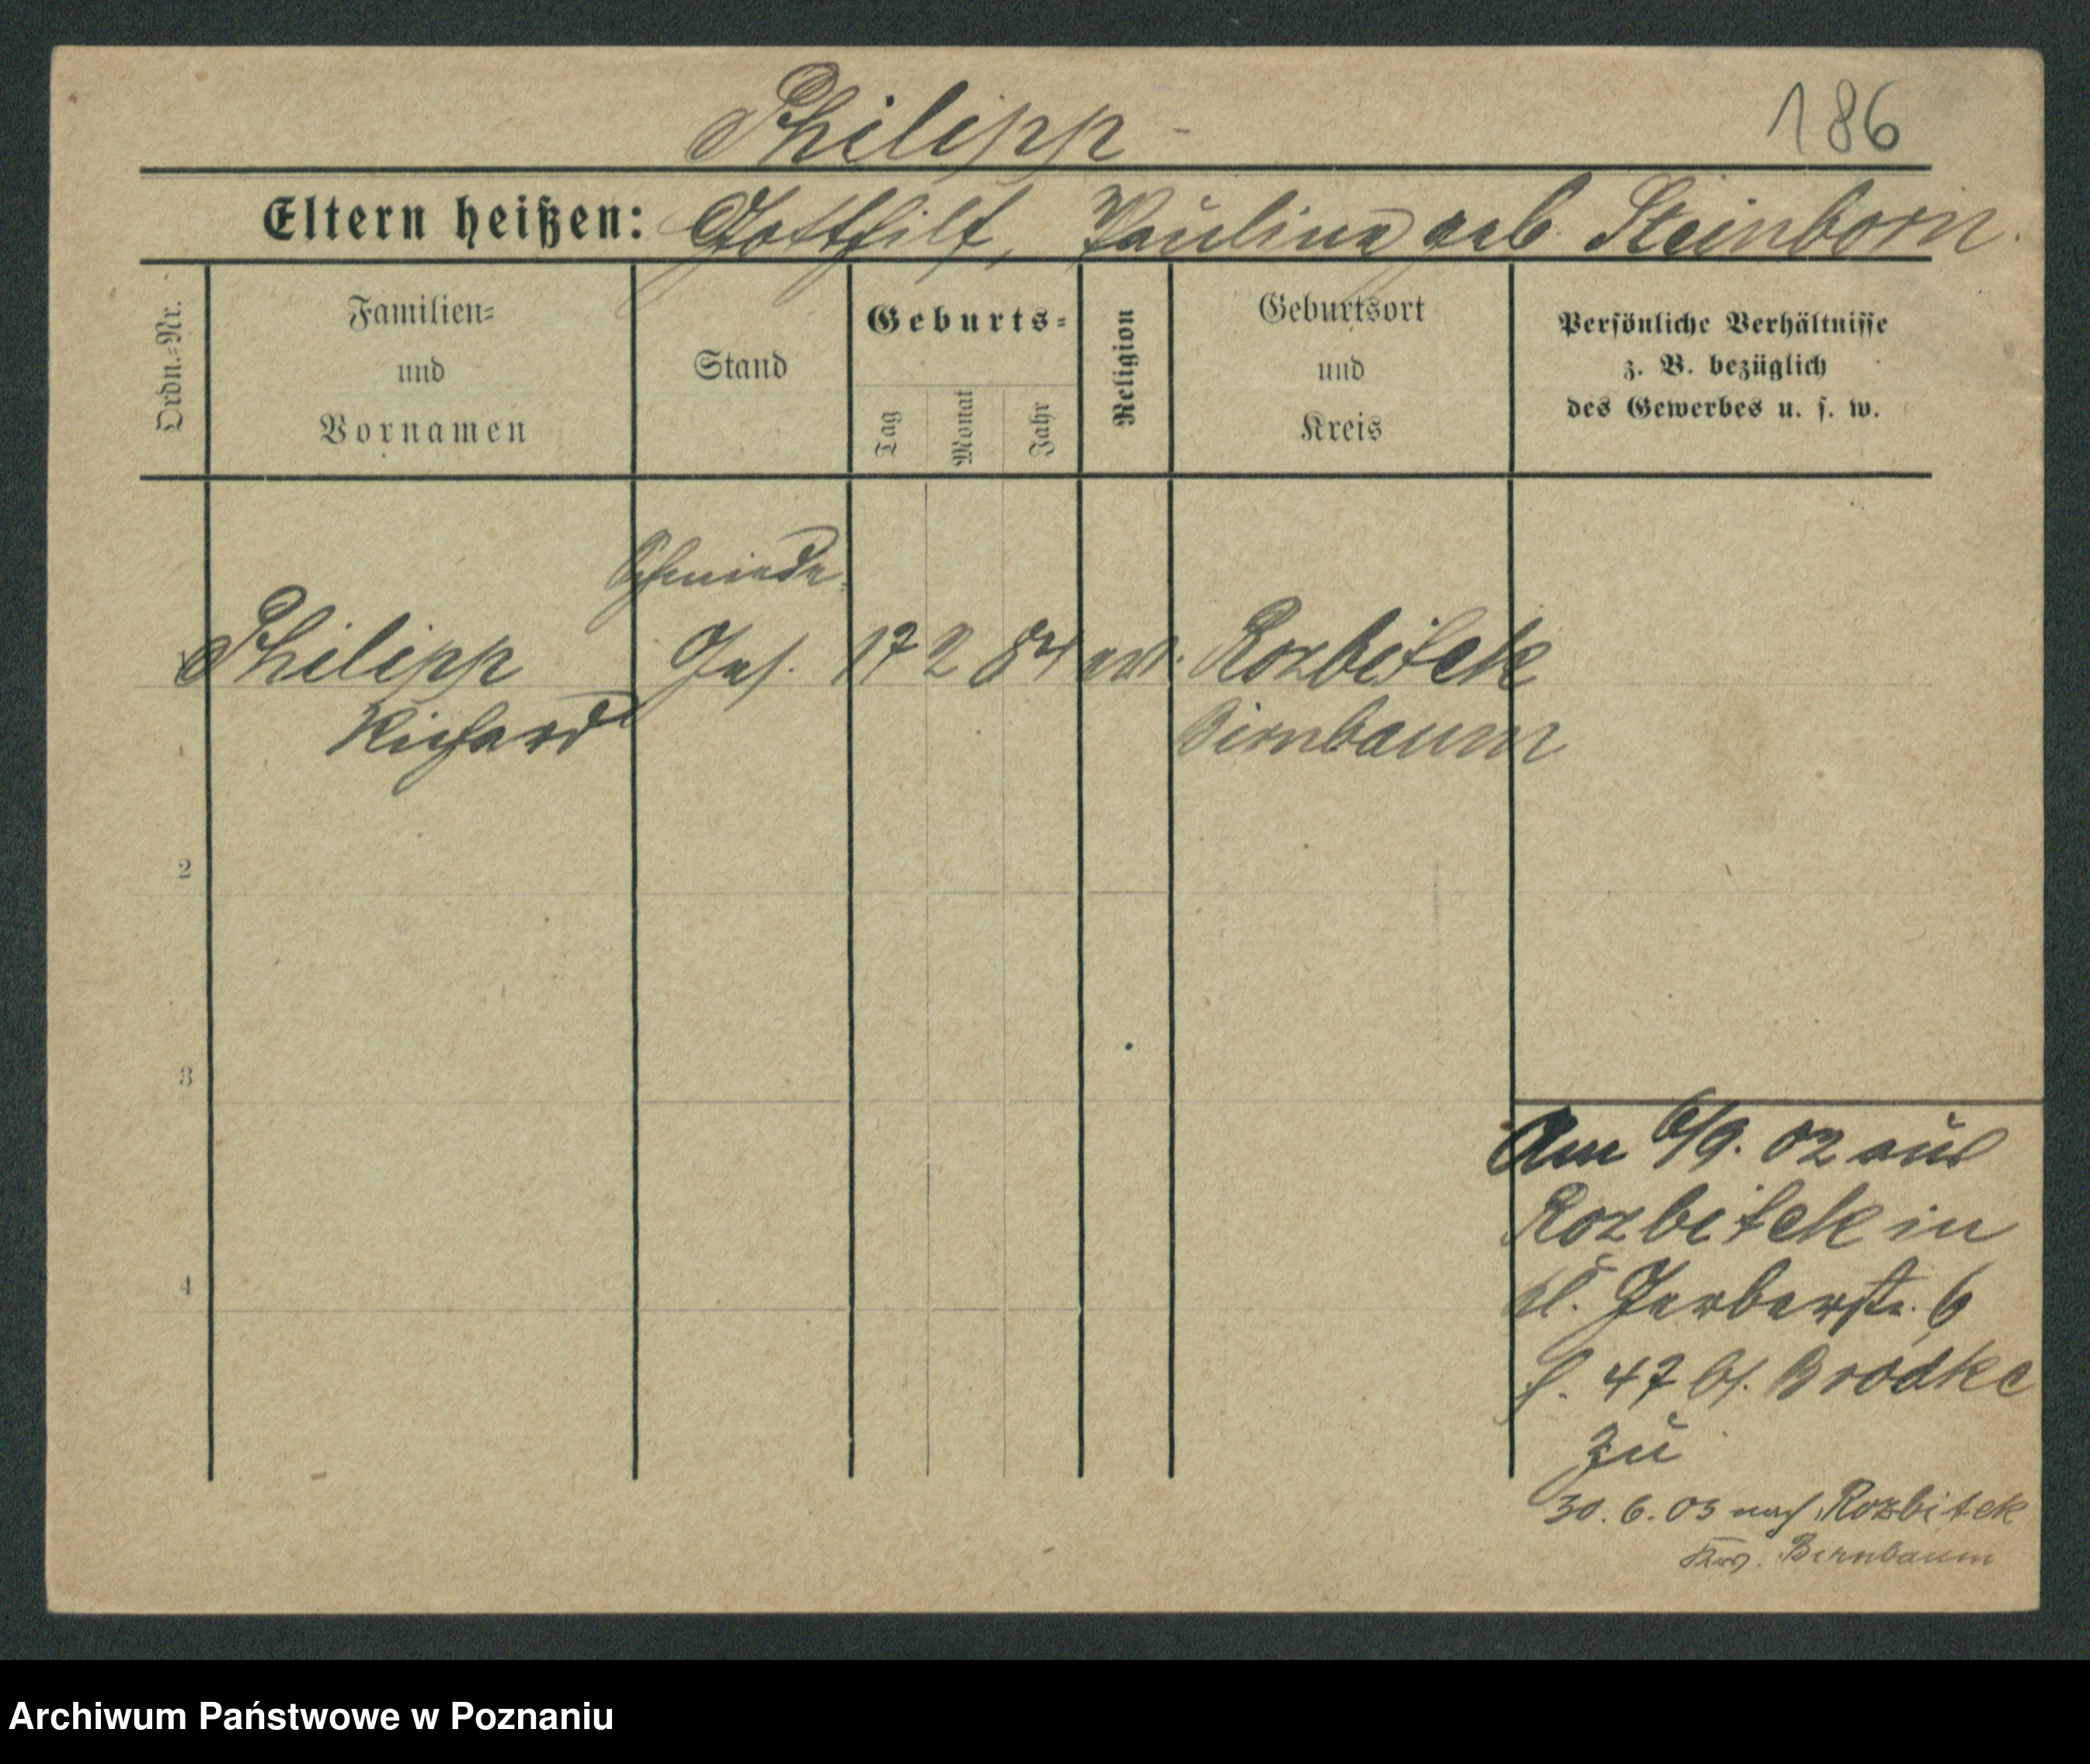 Philipp
186
Eltern heißen: Gotthilf, Pauline geb. Steinborn.
Ordn.-Nr.
Familien-
und
Vornamen
Stand
Geburts-
Tag
Monat
Jahr
Religion
Geburtsort
und
Kreis
Persönliche Verhältnisse
z. B. bezüglich
des Gewerbes u. s. w.
Schmiede-
Philipp Ges. 17 2 84 ev. Rozbitek
Richard Birnbaum
2
3
4
Am 6/9. 02 aus
Rozbitek in
kl. Gerberstr. 6
h. 47 b/. Brodke
zu
30. 6. 03 nach Rozbitek
Birnbaum
Archiwum Państwowe w Poznaniu